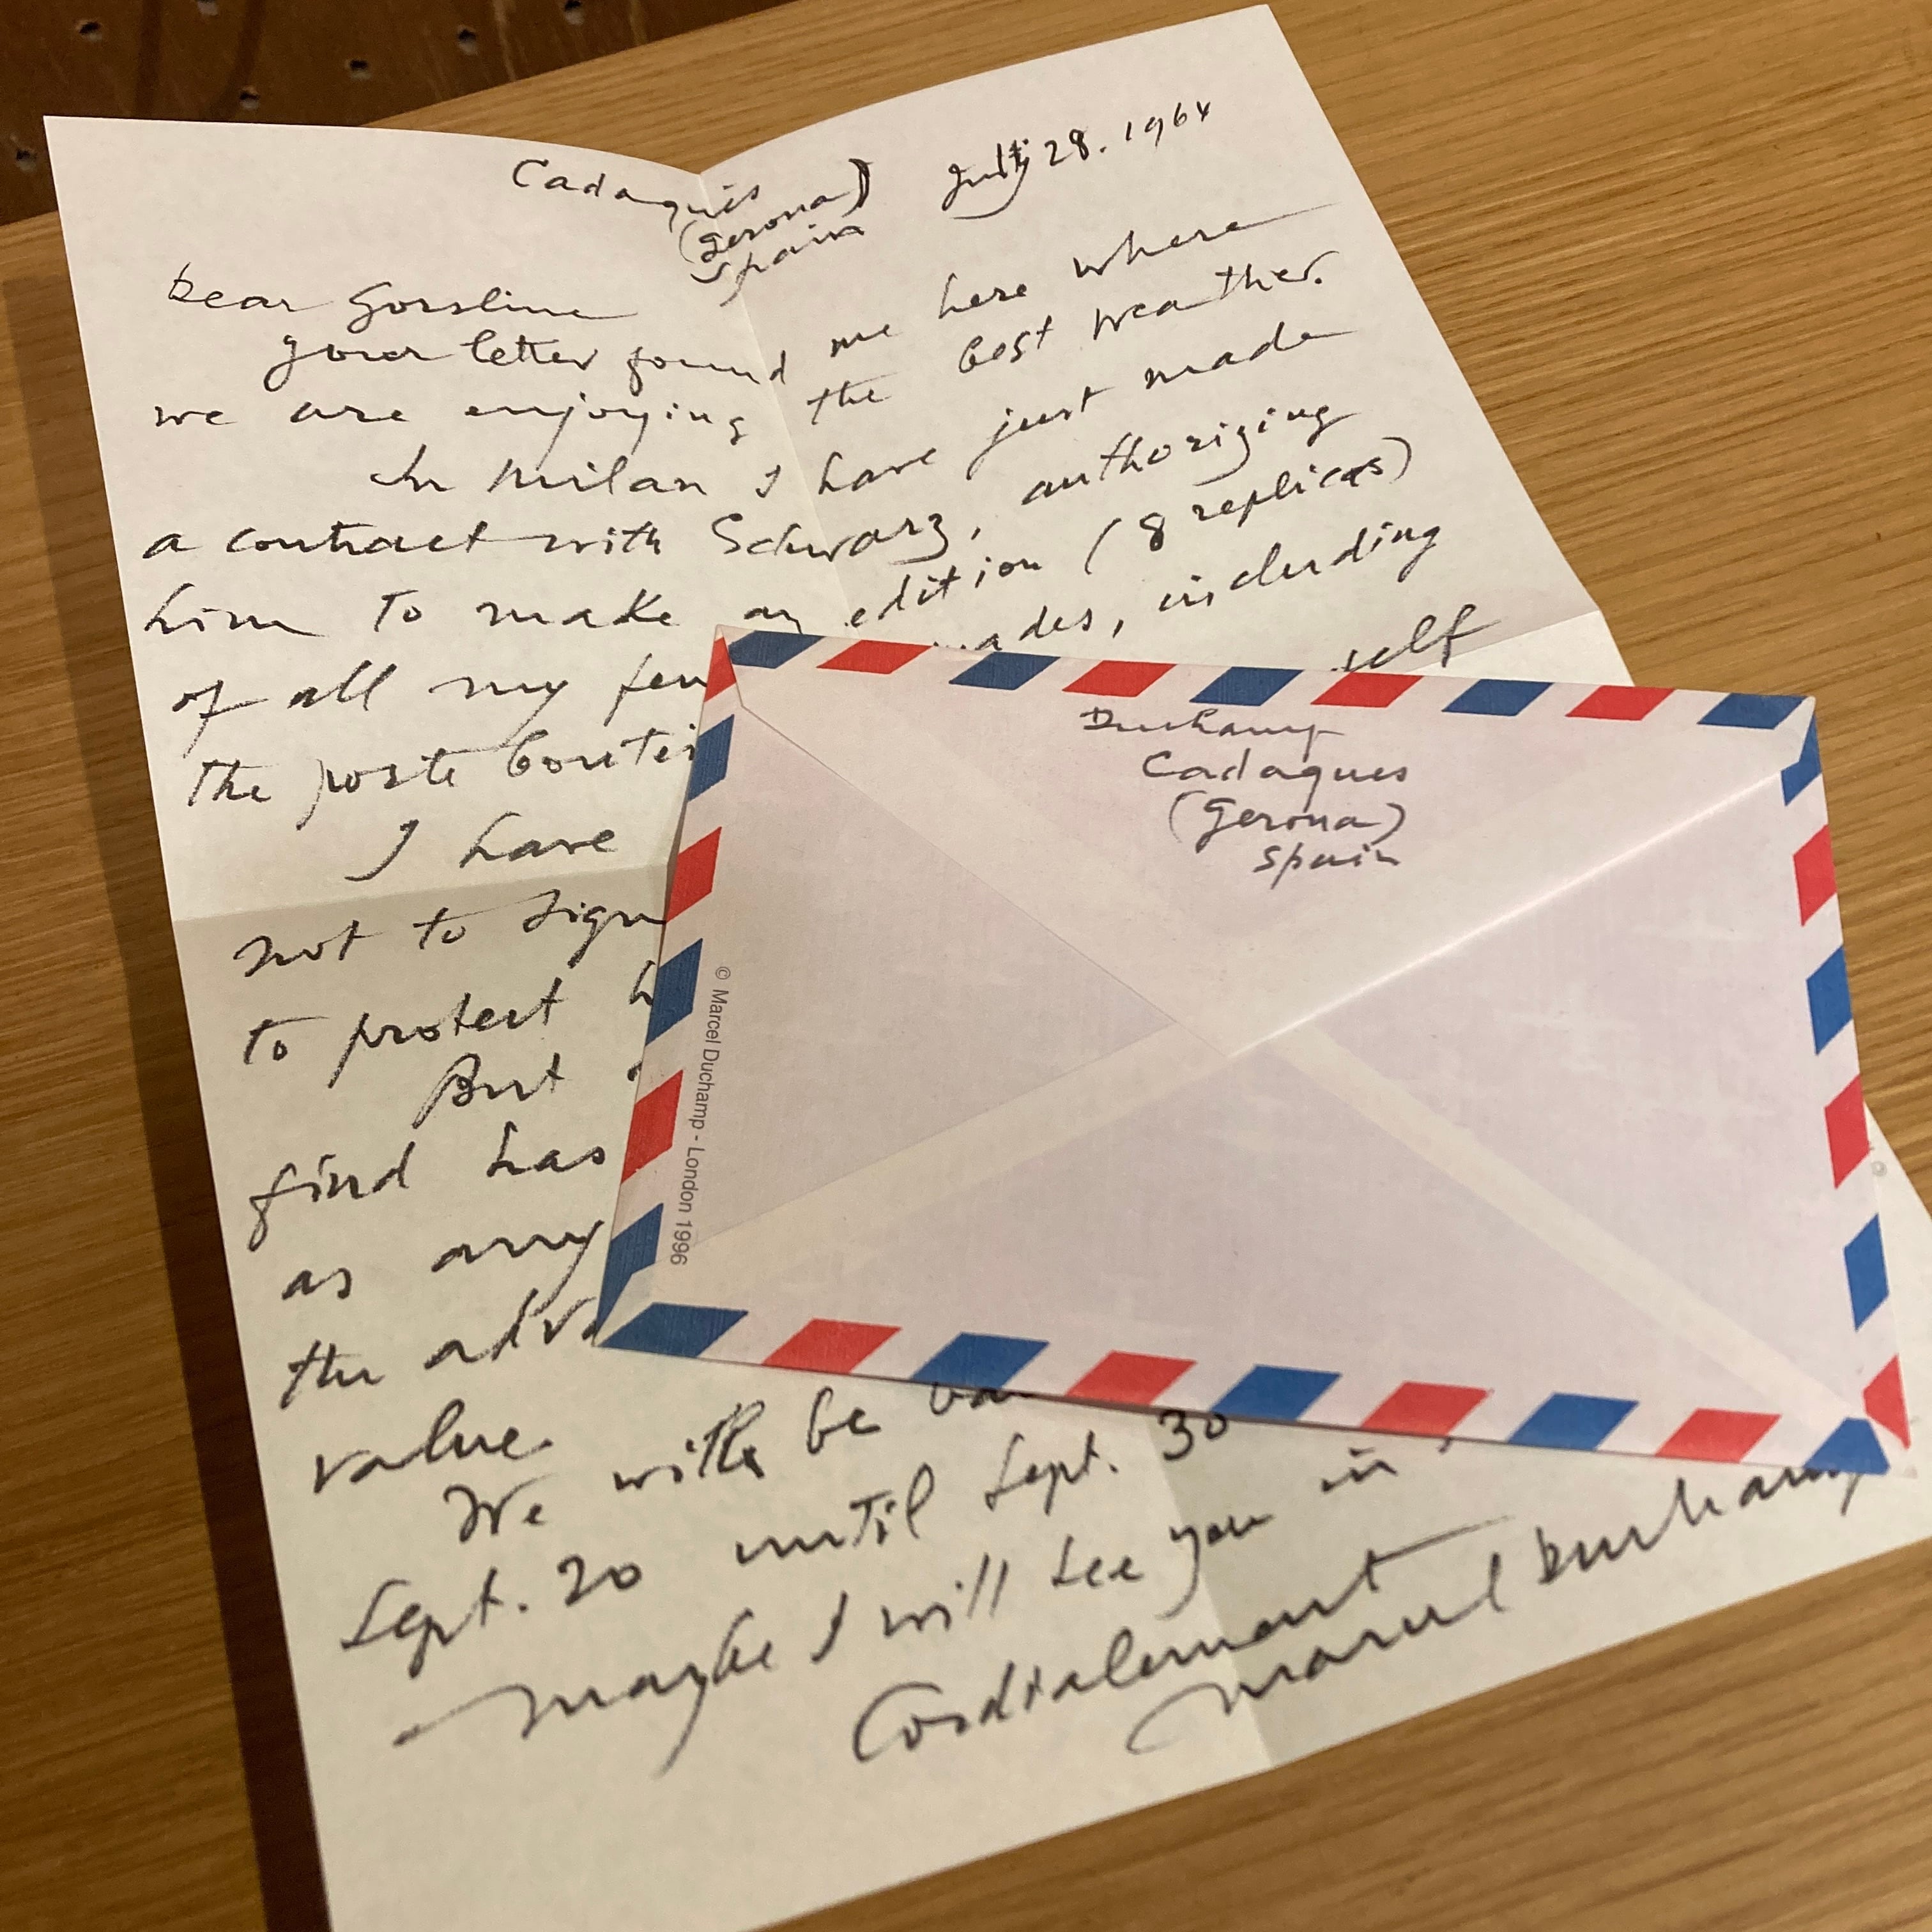 Cadaquès
(Gerona)
Spain
July 28. 1964
Dear Gorsline
your letter found me here where
we are enjoying the best weather.
In Milan I have just made
a contract with Schwarz, authorizing
him to make an edition (8 replicas)
of all my few ades, including
the porte boutei self
I have
not to sign
to protect h
But
find has
as any
the adva
value.
We will be ba
Sept. 20 until Sept. 30
Maybe I will see you in
Cordialement
Marcel Duchamp
Duchamp
Cadaques
(Gerona)
Spain
© Marcel Duchamp - London 1996